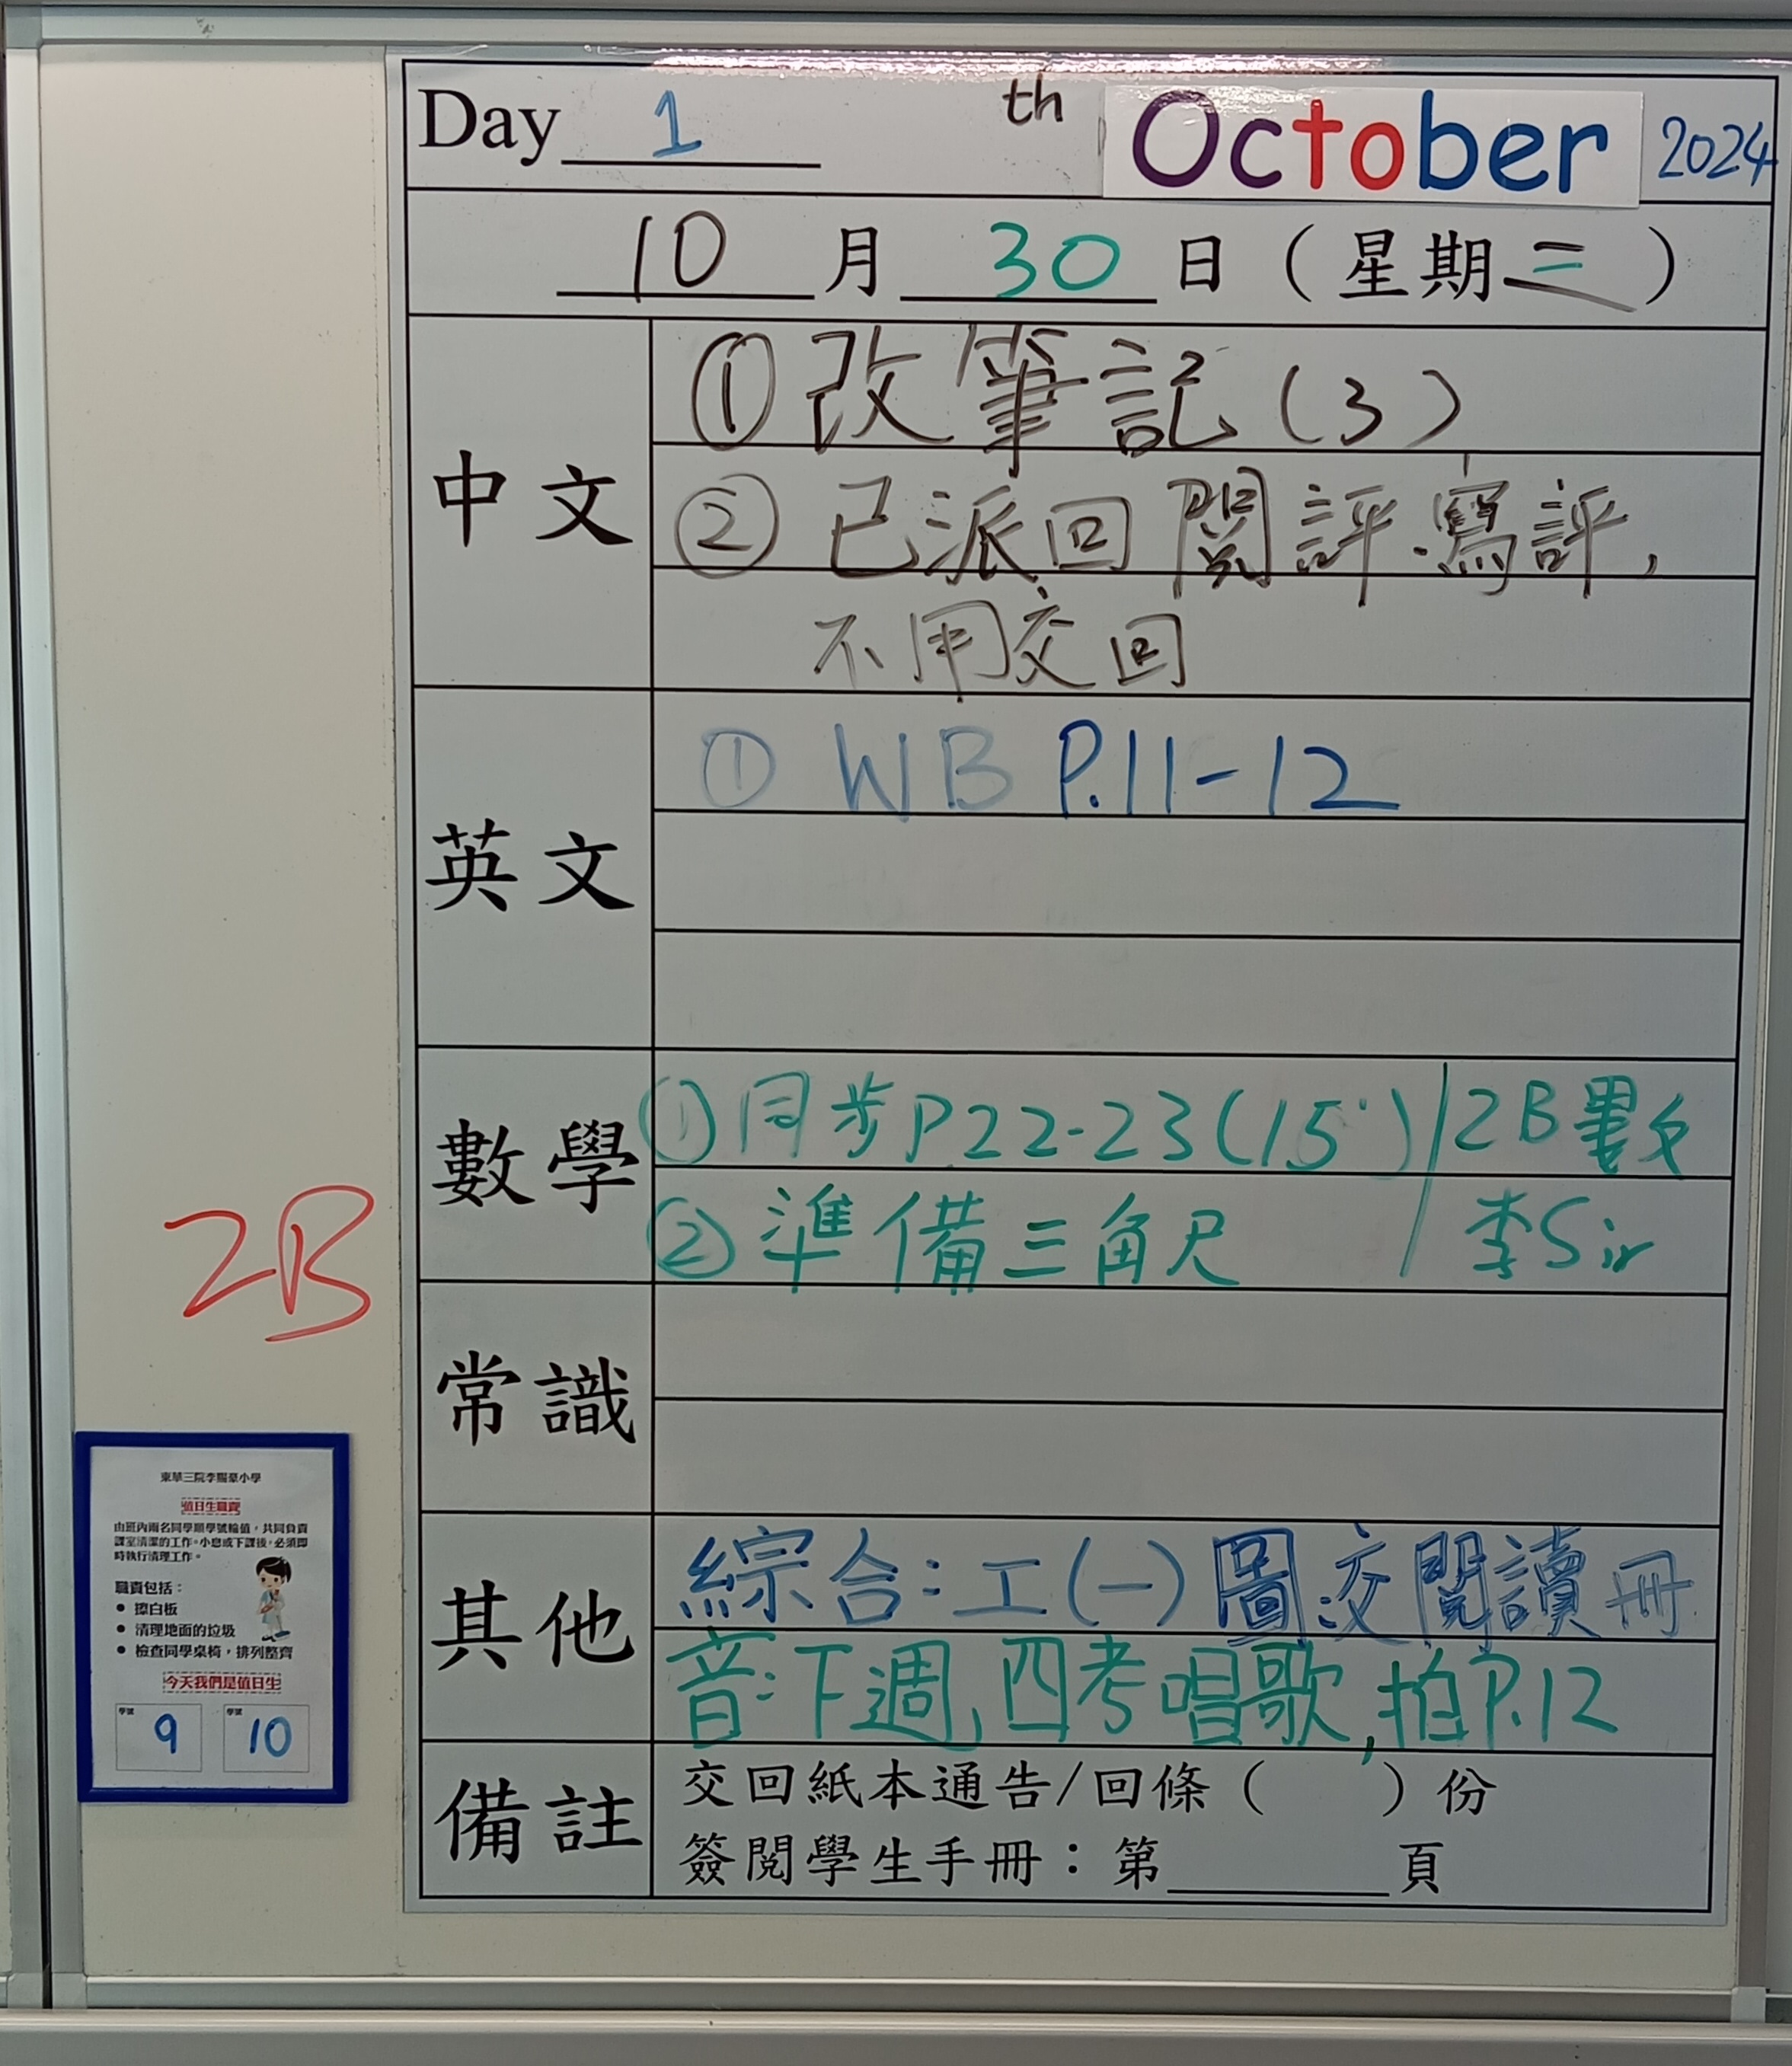 Day 1 th October 2024
10 月 30 日 ( 星期三 )
中文
① 改筆記 (3)
② 已派回閱評、寫評,
不用交回
英文
① WB P.11-12
數學
① 同步P.22-23(15') / 2B 數
② 準備三角尺 / 李Sir
2B
常識
其他
綜合:工(一) 圖:交閱讀冊
音:下週四考唱歌,拍P.12
備註
交回紙本通告/回條 ( ) 份
簽閱學生手冊:第 頁
東華三院李賜豪小學
值日生職責
由班內兩名同學順學號輪值,共同負責
課室清潔的工作。小息或下課後,必須即
時執行清理工作。
職責包括:
• 擦白板
• 清理地面的垃圾
• 檢查同學桌椅,排列整齊
今天我們是值日生
學號 9 學號 10